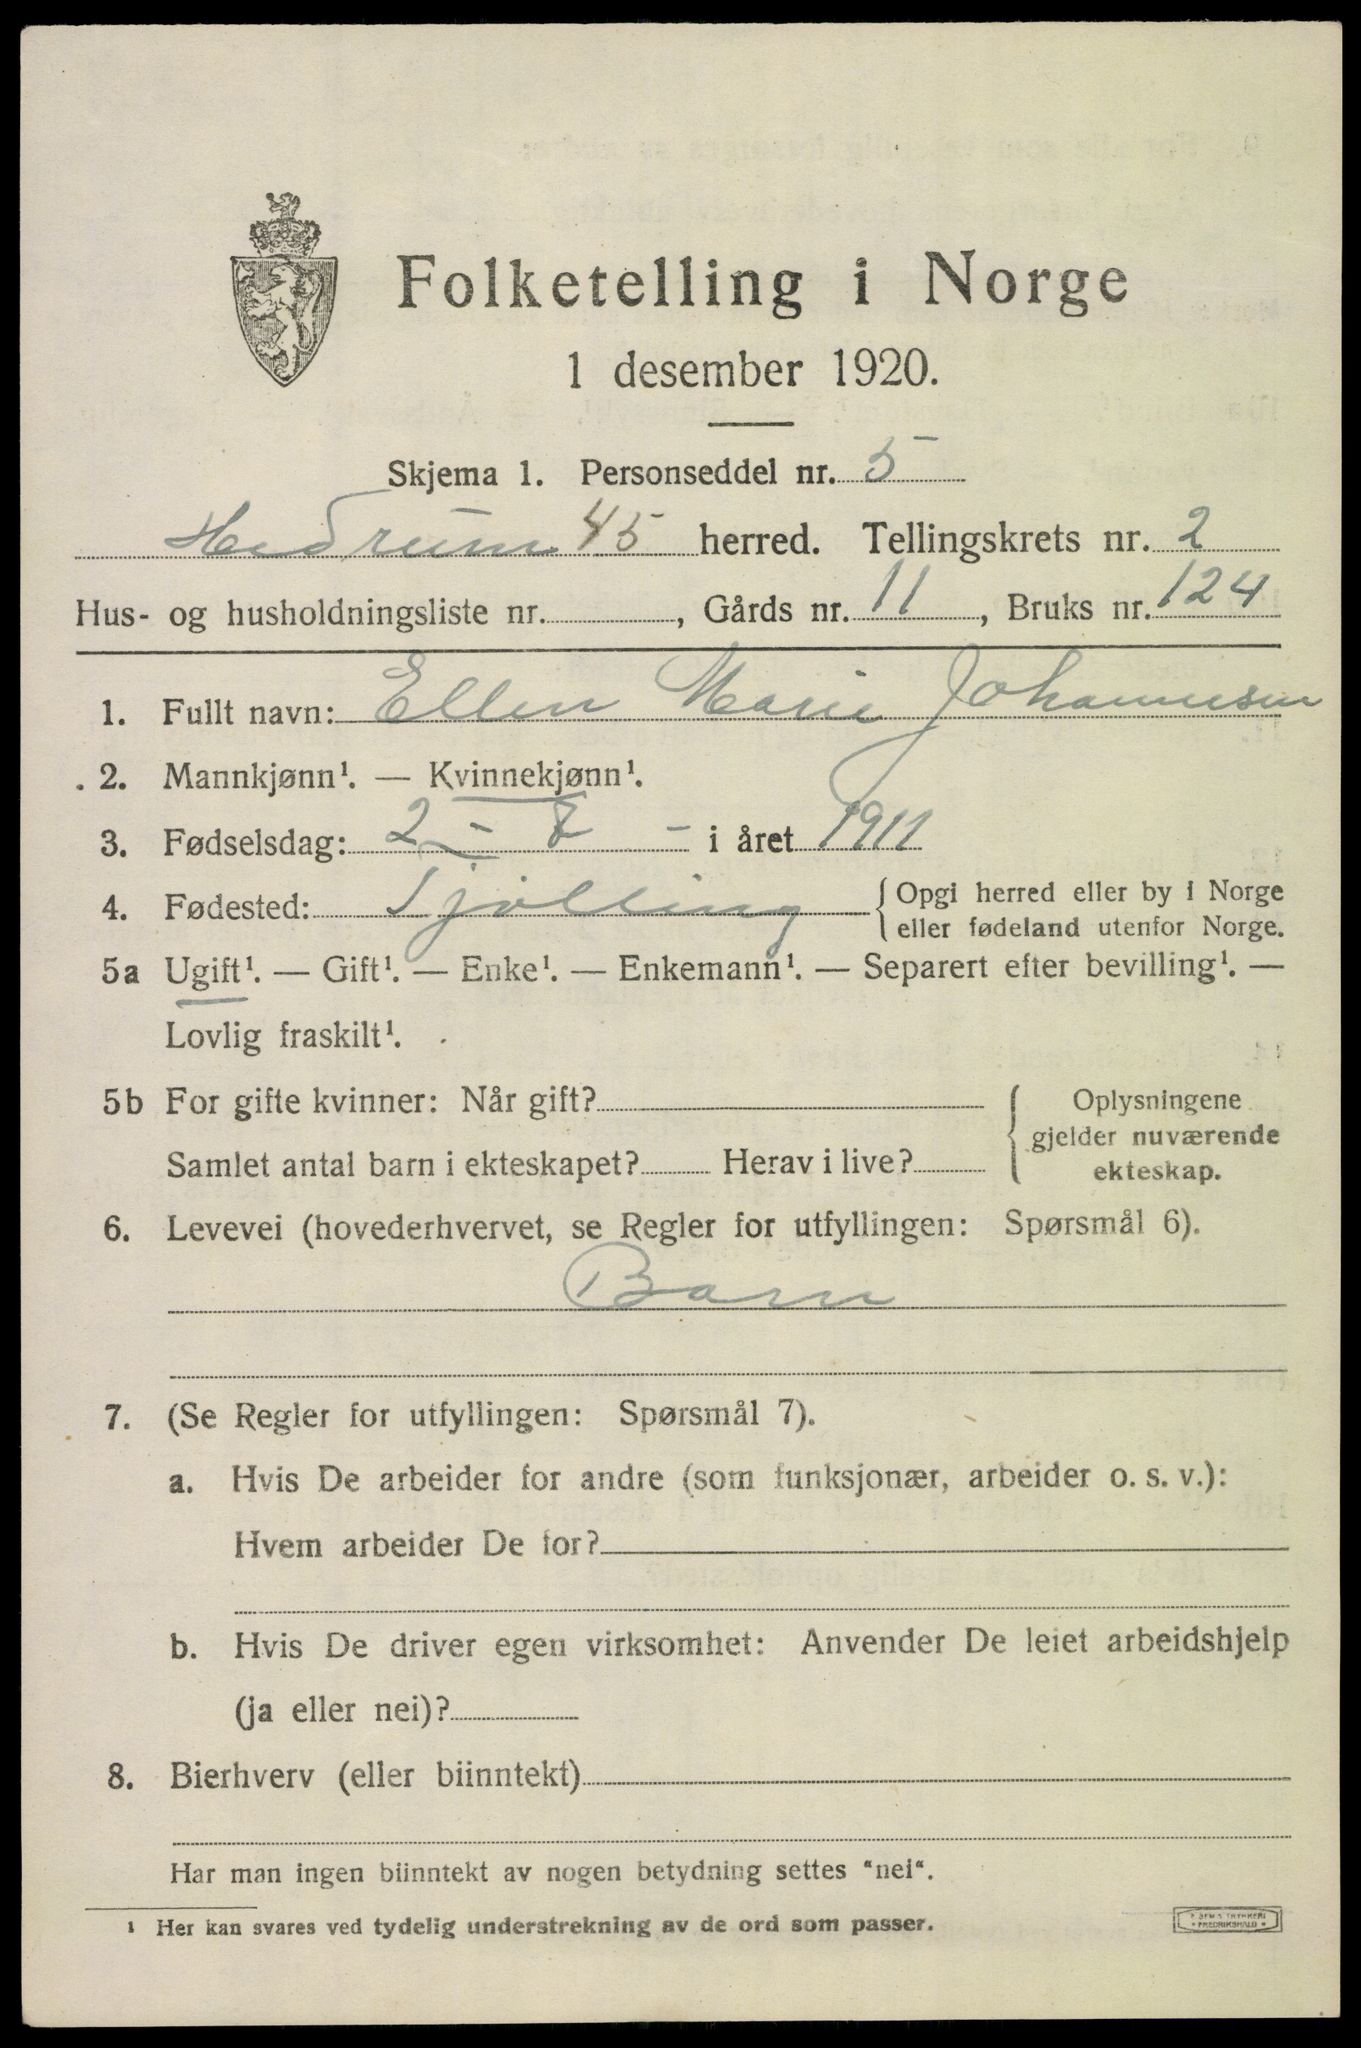 Folketelling i Norge
1 desember 1920.
Skjema 1. Personseddel nr. 5
Hedrum 45 herred. Tellingskrets nr. 2
Hus- og husholdningsliste nr. , Gårds nr. 11 , Bruks nr. 124
1. Fullt navn: Ellen Marie Johannesen
2. Mannkjønn¹. — Kvinnekjønn¹.
3. Fødselsdag: 2 - 8 - i året 1911
4. Fødested: Tjølling {Opgi herred eller by i Norge
eller fødeland utenfor Norge.
5a Ugift¹. — Gift¹. — Enke¹. — Enkemann¹. — Separert efter bevilling¹. —
Lovlig fraskilt¹.
5b For gifte kvinner: Når gift?
Samlet antal barn i ekteskapet? Herav i live?
{Oplysningene
gjelder nuværende
ekteskap.
6. Levevei (hovederhvervet, se Regler for utfyllingen: Spørsmål 6).
Barn
7. (Se Regler for utfyllingen: Spørsmål 7).
a. Hvis De arbeider for andre (som funksjonær, arbeider o. s. v.):
Hvem arbeider De for?
b. Hvis De driver egen virksomhet: Anvender De leiet arbeidshjelp
(ja eller nei)?
8. Bierhverv (eller biinntekt)
Har man ingen biinntekt av nogen betydning settes "nei".
¹ Her kan svares ved tydelig understrekning av de ord som passer.
FREDRIKSHALD